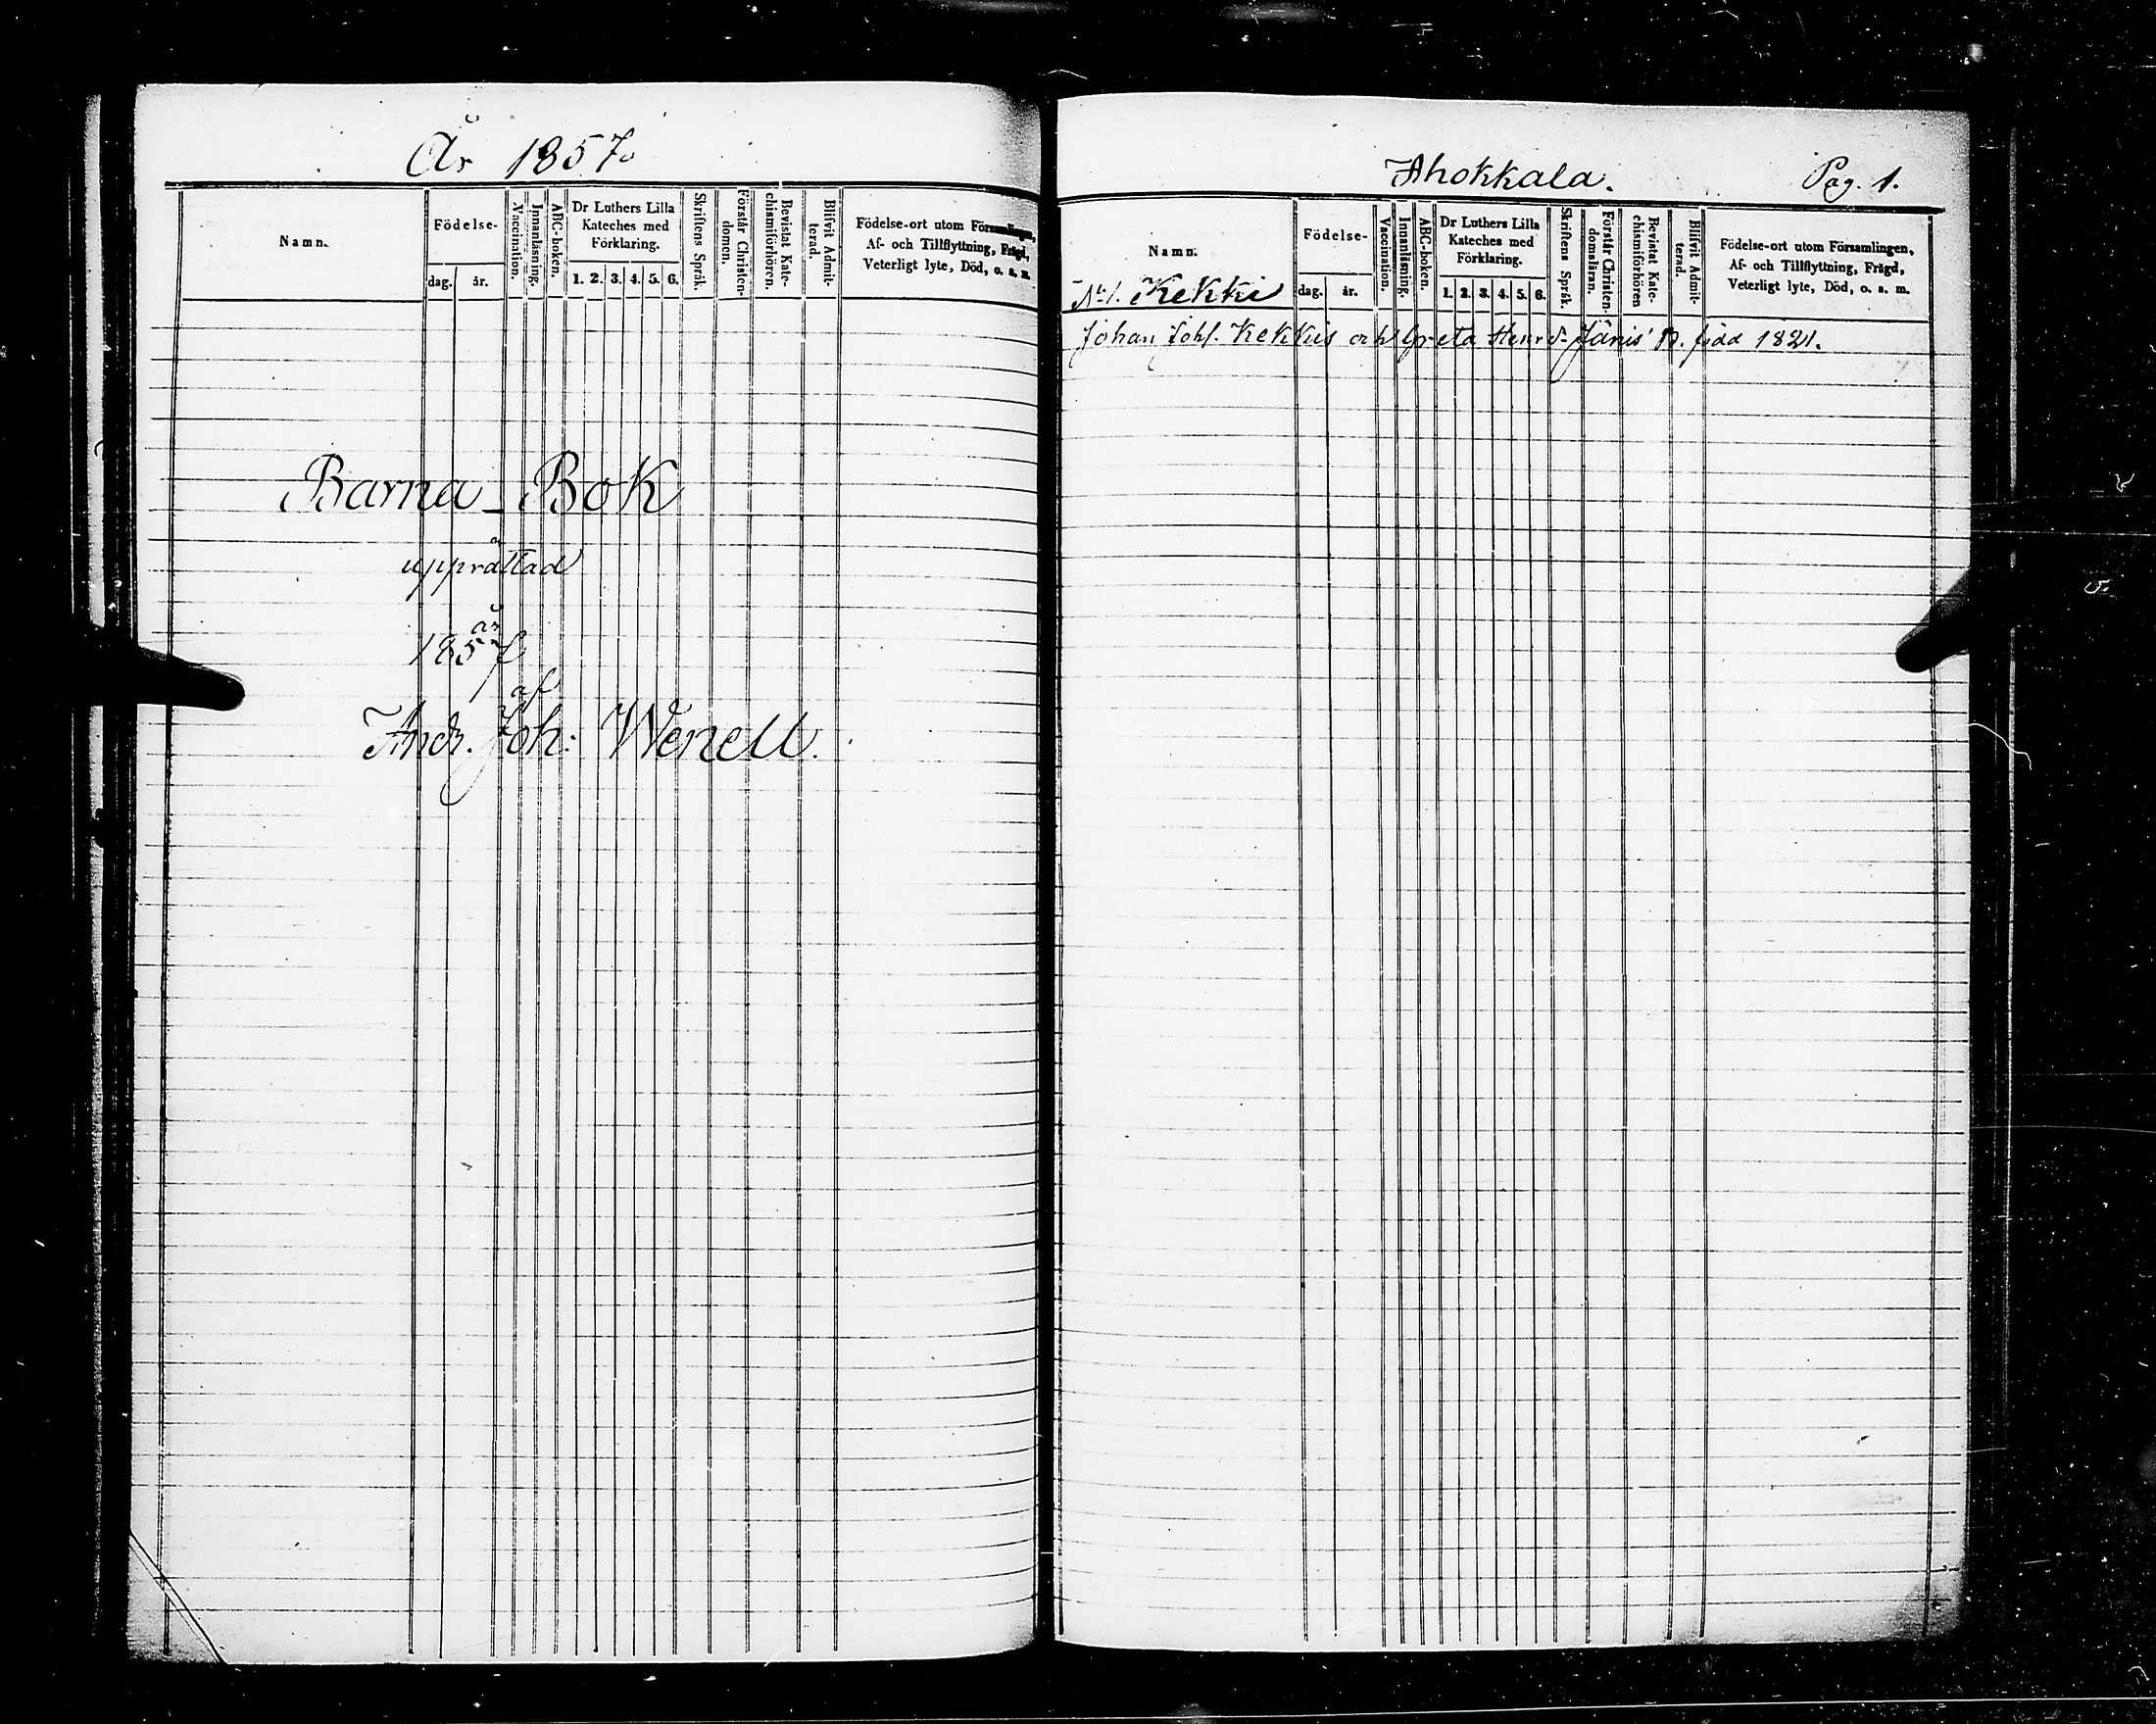 År 1857.
Namn.
Födelse-
dag. år.
Vaccination.
Innanläsning.
ABC-boken.
Dr Luthers Lilla
Kateches med
Förklaring.
1. 2. 3. 4. 5. 6.
Skriftens Språk.
Förstår Christen-
domen.
Bevistat Kate-
chismiförhören.
Blifvit Admit-
terad.
Födelse-ort utom Församlingen,
Af- och Tillflyttning, Frägd,
Veterligt lyte, Död, o. s. m.
Barna-Bok
upprättad
år
1857
af
Andr. Joh: Wenell.
Ahokkala. Pag. 1.
Namn.
Födelse-
dag. år.
Vaccination.
Innanläsning.
ABC-boken.
Dr Luthers Lilla
Kateches med
Förklaring.
1. 2. 3. 4. 5. 6.
Skriftens Språk.
Förstår Christen-
domsläran.
Bevistat Kate-
chismiförhören
Blifvit Admit-
terad.
Födelse-ort utom Församlingen,
Af- och Tillflyttning, Frägd,
Veterligt lyte, Död, o. s. m.
No 1. Kekki
Johan Johs. Kekkis och Greta Henrs. Jänis' född 1821.